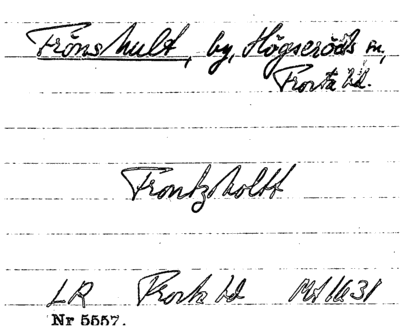 Frönshult, by, Högseröds sn,
Frosta hd.
Frontzholtt
LR Frosta hd Mt 1631
Nr 5557.